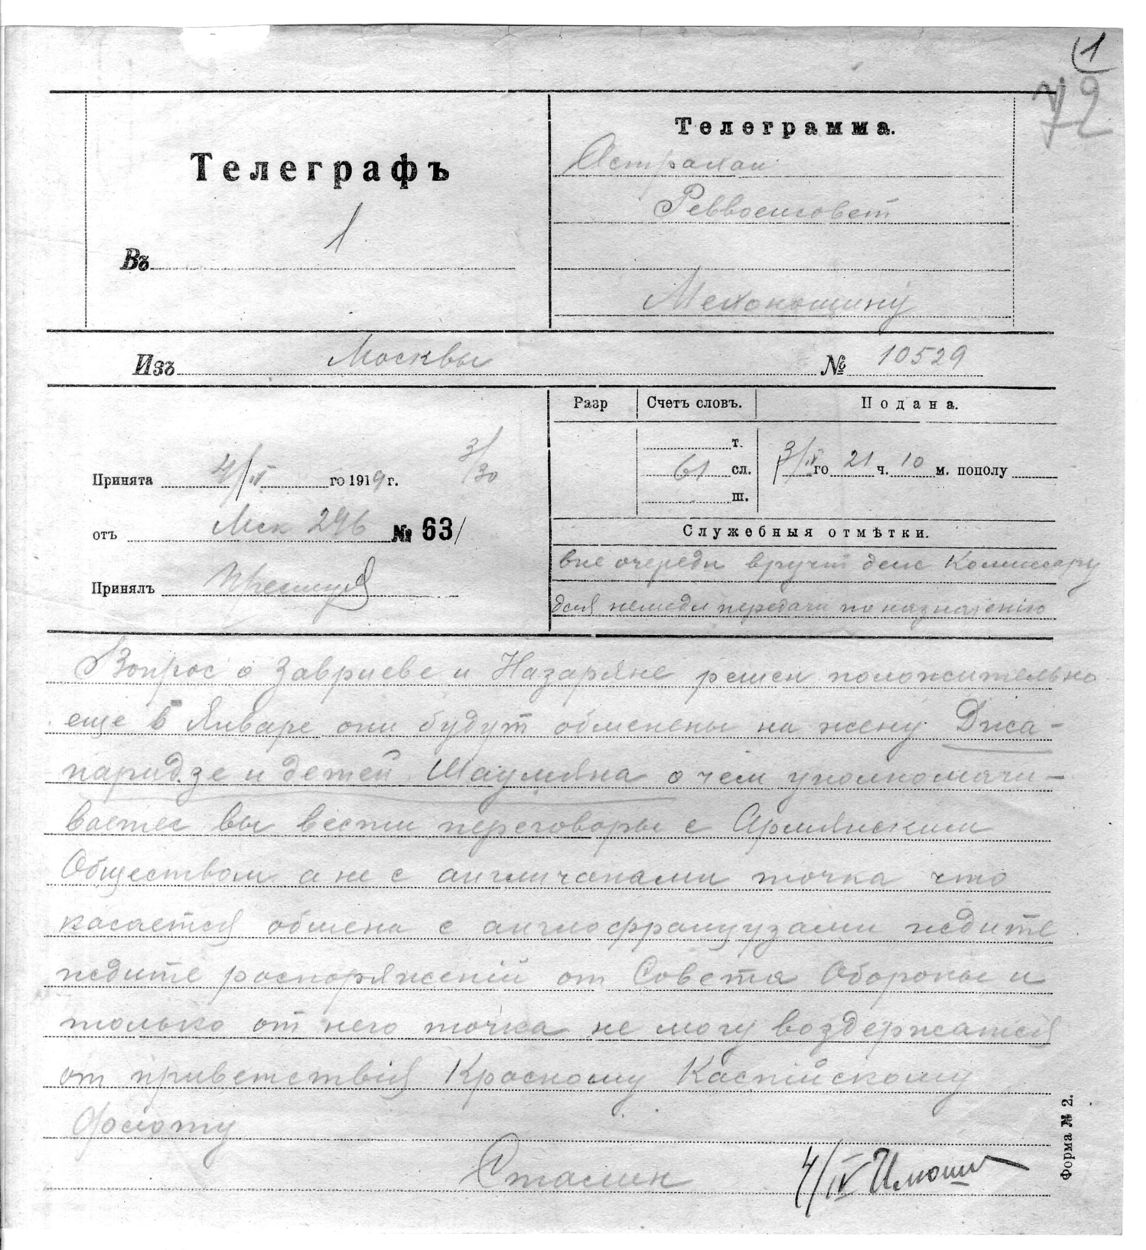 1
72
Телеграфъ
Въ 1
Телеграмма.
Астрахан
Реввоенсовет
Мехоношину
Изъ Москвы № 10529
Принята 4/IV го 1919 г. 3/30
отъ Мск 296 № 63/
Принялъ
Разр Счетъ словъ. Подана.
т.
61 сл.
ш.
3/IV го 21 ч. 10 м. пополу
Служебныя отмѣтки.
вне очереди вручит Комиссару
для немедл передачи по назначению
Вопрос о Завриеве и Назаряне решен положительно
еще в Январе они будут обменены на жену Джа-
паридзе и детей Шаумяна о чем уполномачи-
ваетес вы вести переговоры с Армянским
Обществом а не с англичанами точка что
касается обмена с англофранцузами ждите
ждите распоряжений от Совета Обороны и
только от него точка не могу воздержатся
от приветствія Красному Каспійскому
Флоту
Сталин
4/IV
Форма № 2.